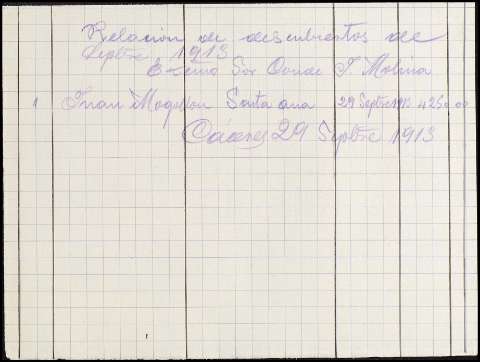 Relacion de descubiertos de
Septbre 1913
Exmo Sor Conde T Molina
1 Juan Mogollon Santa ana 29 Septre 1913 425 0 00
Cáceres 29 Septbre 1913